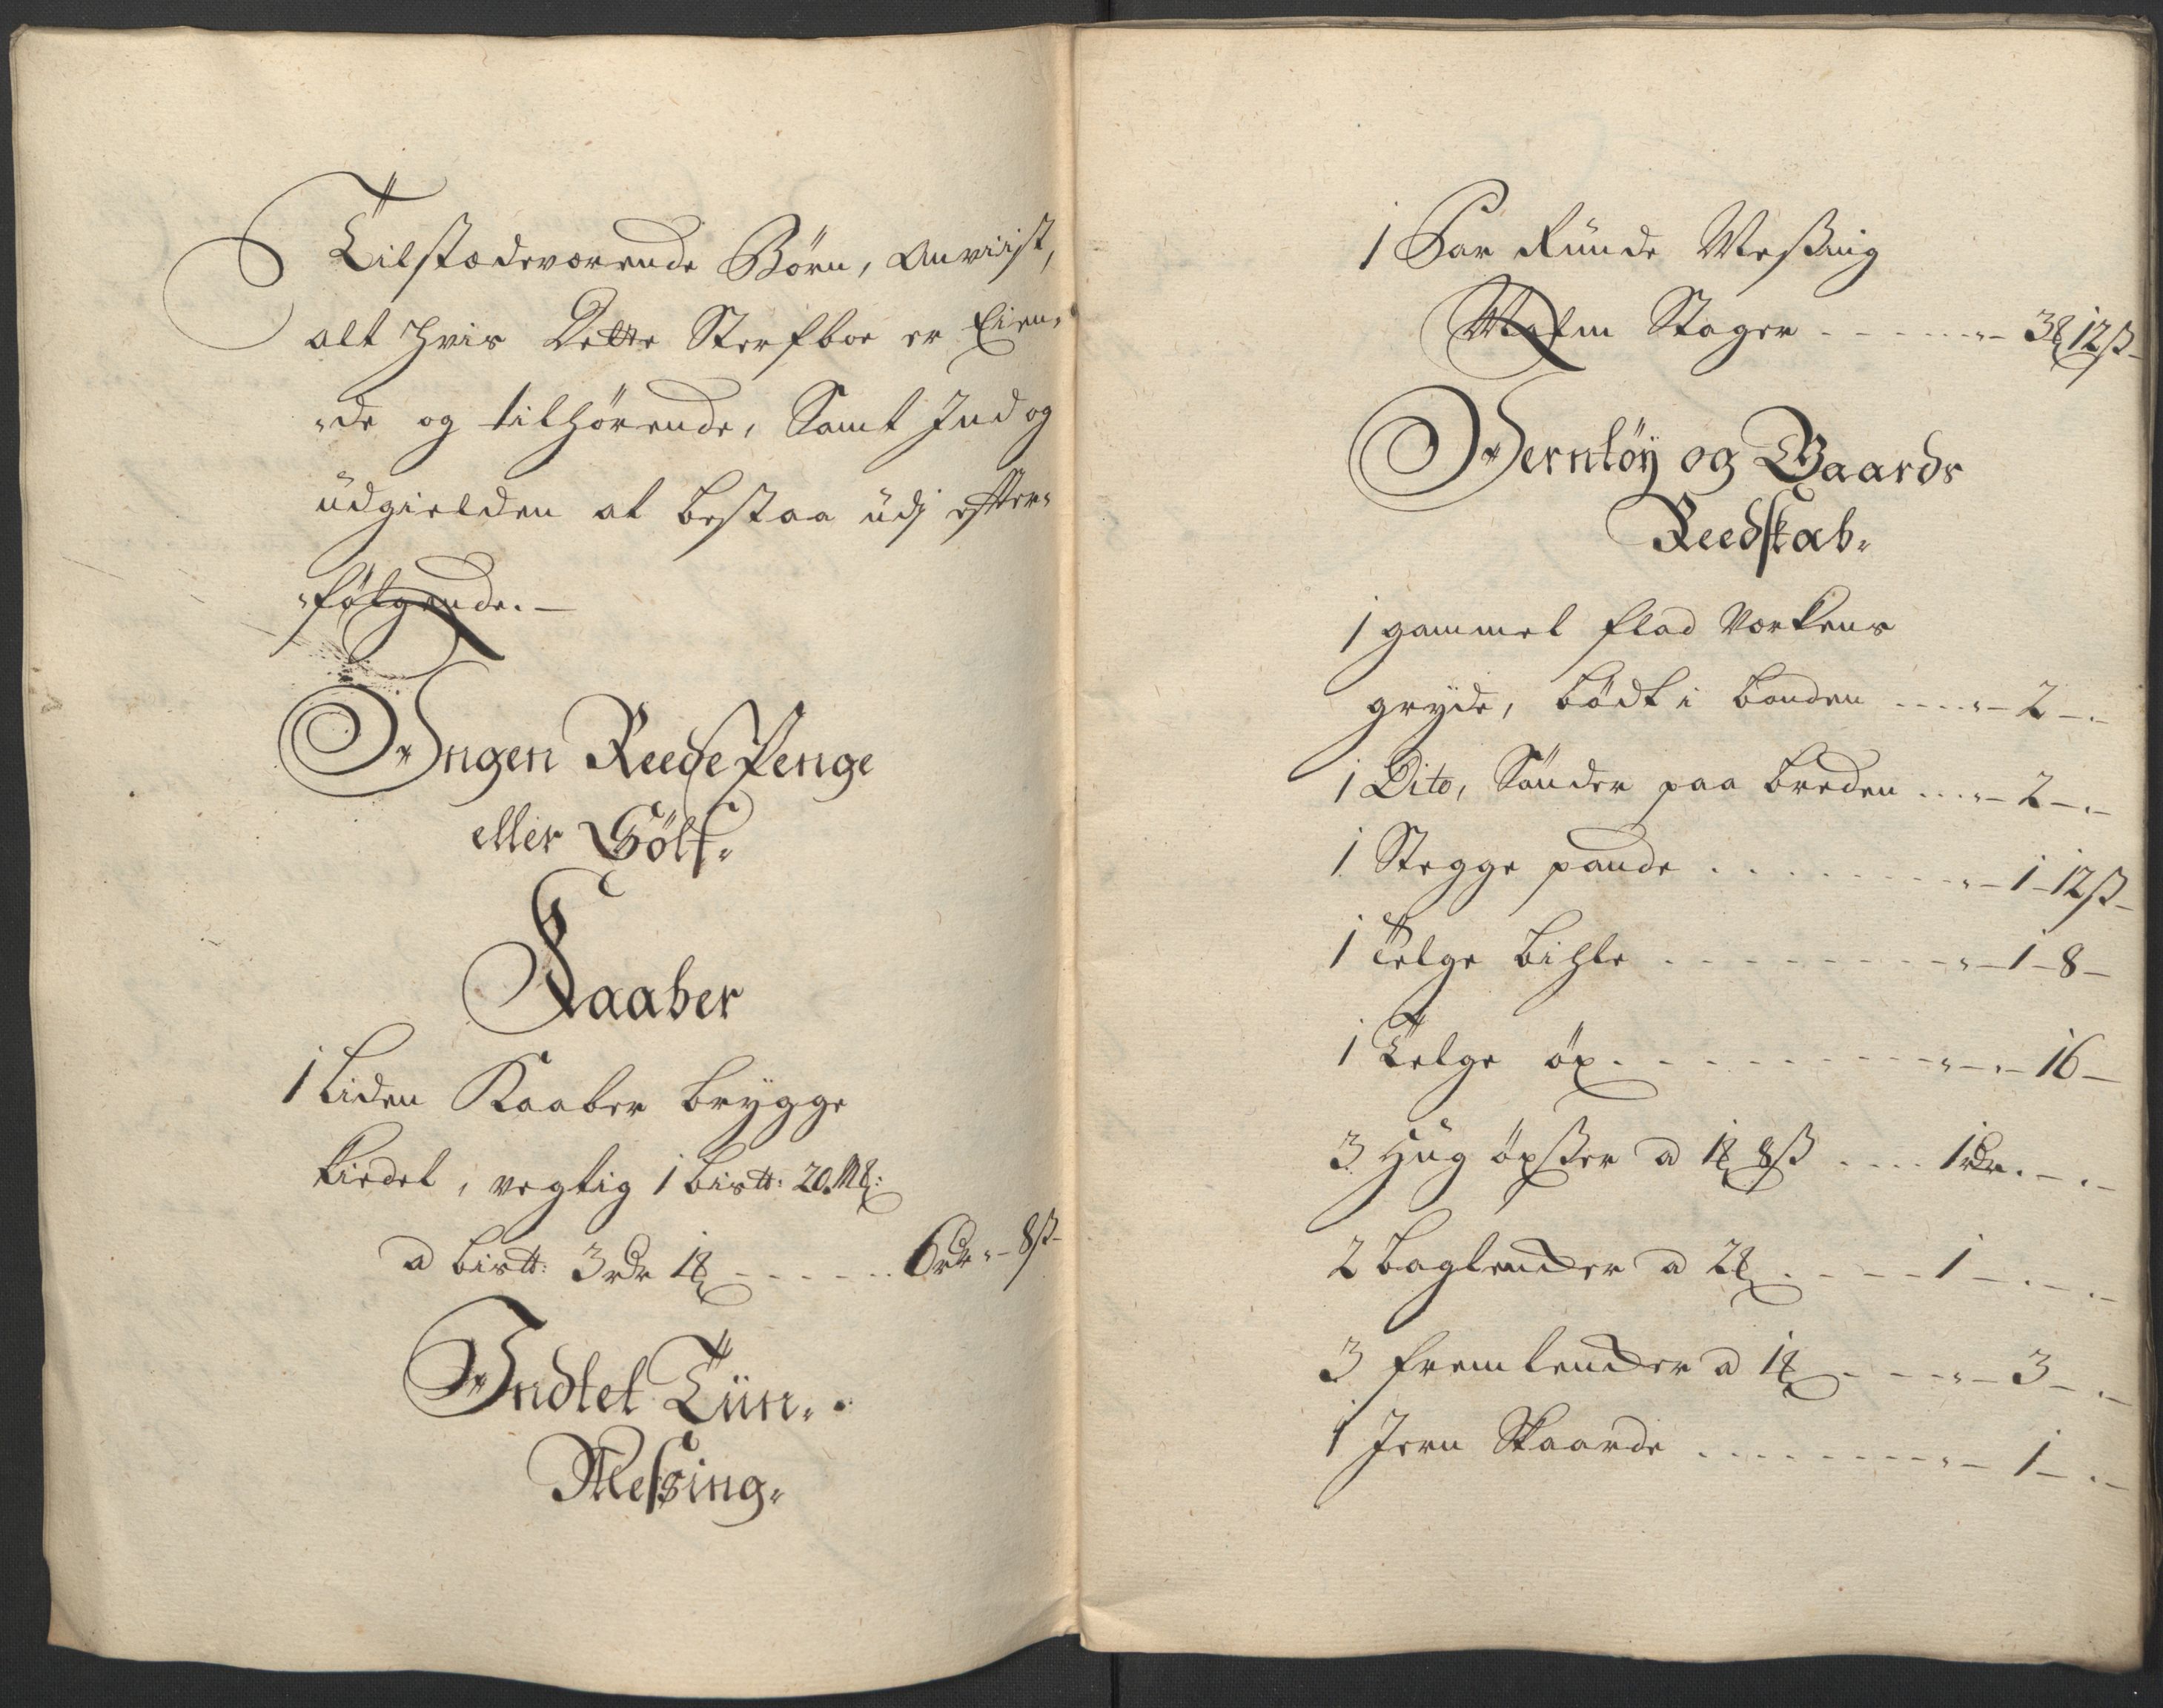 Tilstædeværende Børn, Anviist,
alt hvis Dette Sterfboe er Eien-
-de og tilhørende, Samt Ind og
üdgielden at bestaa üdj effter-
-følgende. -
Ingen Reede Penge
eller Sölf.
Kaaber
1 liden Kaaber brygge
kiedel, vegtig 1 bis℔: 20. M℔:
a bis℔: 3 rdr 1 ℔ - - - - - - 6 rdr „ - 8 ß -
Indtet Tiin.
Messing.
1 Par Runde Messing
Malm Stager - - - - - - „ - 3 ℔ 12 ß -
Jerntöÿ og Gaards
Reedskab.
1 gammel flad Værkens
gryde, bödt i bonden . . . . „ - 2 - „ -
1 Dito, Sönder paa breden . . . „ - 2 - „ -
1 Stegge pande . . . . . . . . „ - 1 - 12 ß -
1 Telge bihle . . . . . . . . . „ - 1 - 8 -
1 Telge öx . . . . . . . . . „ - „ - 16 -
3 Hug öxßer a 1 ℔ 8 ß . . . . 1 rdr. - „ -
2 baglender a 2 ℔ . - - - - 1 - „ - „ -
3 fremlender a 1 ℔ - - - - „ - 3 - „ -
1 Jern Skaarde . . . . . . . . „ - 1 - „ -